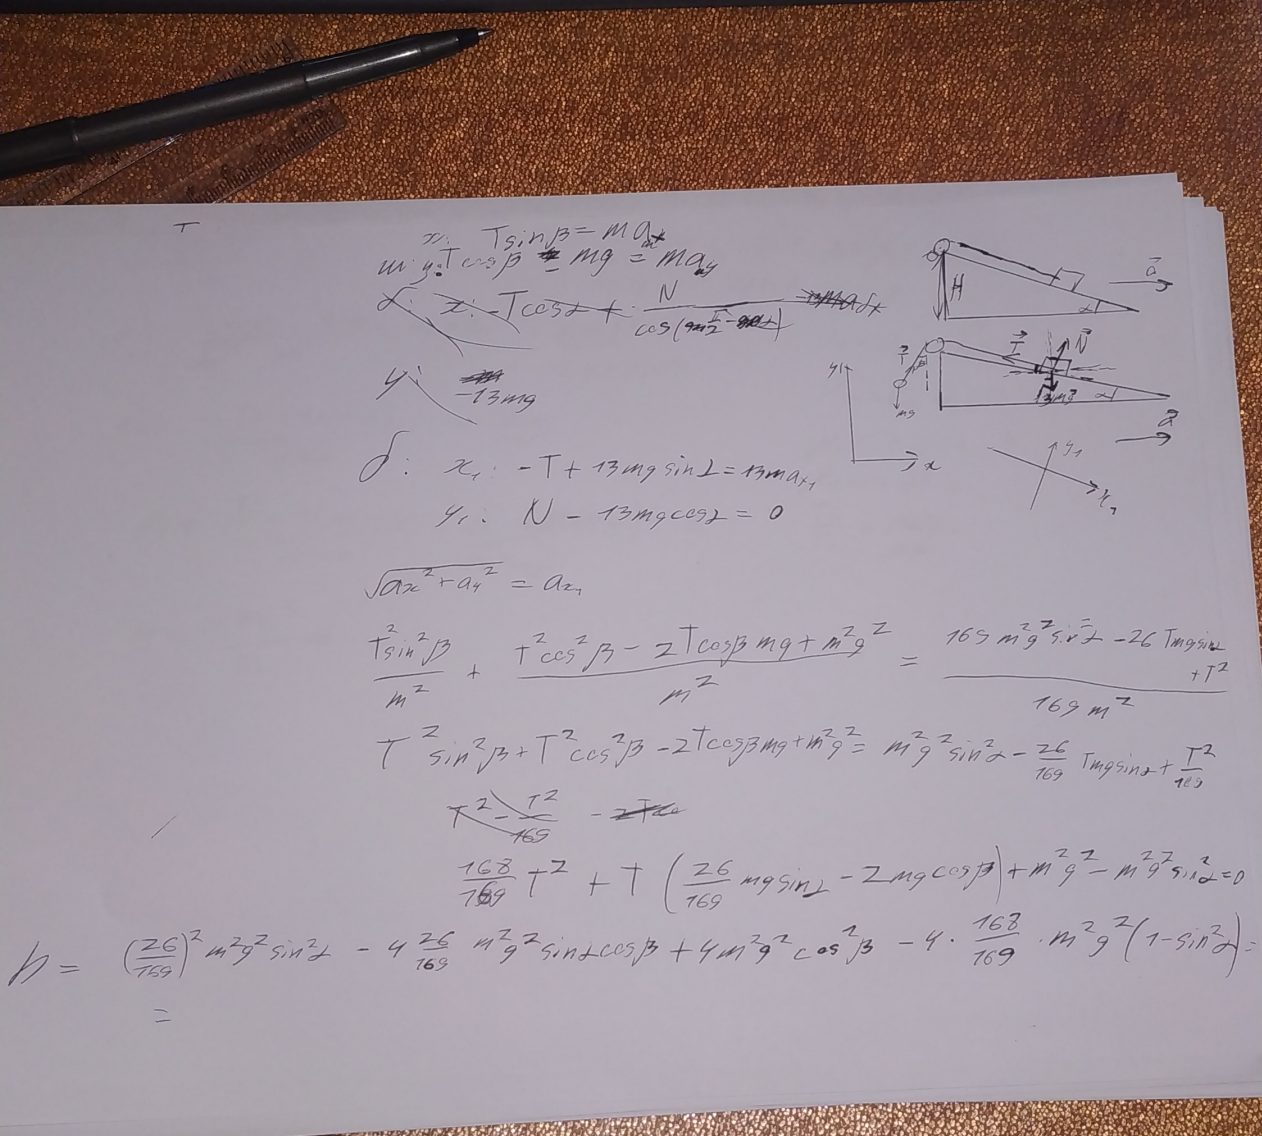 T
x: T sinβ = m aₓ
ш: y: T cosβ - mg = m a_y
δ: x: -T cosα + N / cos(π/2 - α)
y: -13mg
δ: x₁: -T + 13mg sinα = 13m aₓ₁
y₁: N - 13mg cosα = 0
√(aₓ² + a_y²) = aₓ₁
T² sin²β / m² + (T² cos²β - 2T cosβ mg + m²g²) / m² = (169 m²g² sin²α - 26 T mg sinα + T²) / 169 m²
T² sin²β + T² cos²β - 2T cosβ mg + m²g² = m²g² sin²α - 26/169 T mg sinα + T²/169
T² - T²/169
168/169 T² + T (26/169 mg sinα - 2mg cosβ) + m²g² - m²g² sin²α = 0
D = (26/169)² m²g² sin²α - 4 26/169 m²g² sinα cosβ + 4m²g² cos²β - 4 · 168/169 · m²g² (1 - sin²α) =
=
H
a
α
T
N
β
mg
13mg
α
a
y
x
y₁
x₁